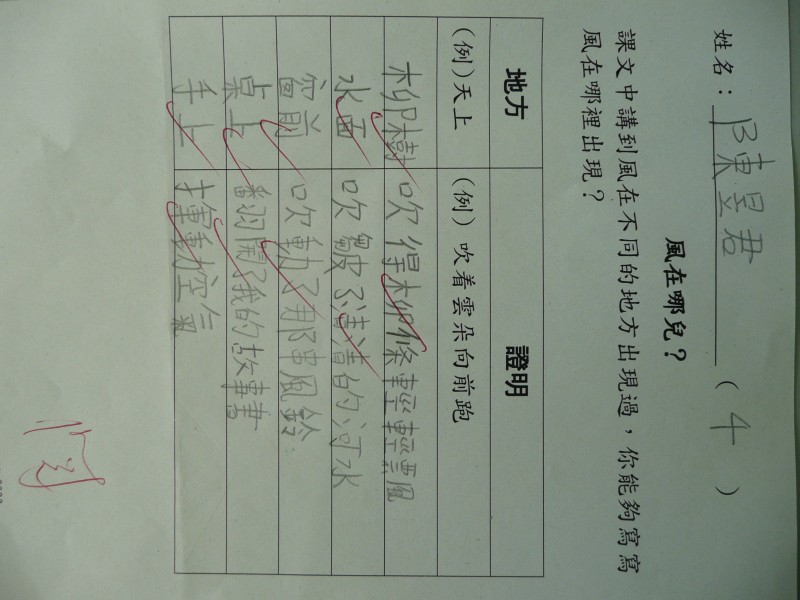 姓名：陳昱君（4）
風在哪兒？
課文中講到風在不同的地方出現過，你能夠寫寫
風在哪裡出現？
地方 證明
(例)天上 (例) 吹着雲朵向前跑
柳樹 吹得柳條輕輕飄
水面 吹皺了清清的河水
窗前 吹動了那串風鈴
桌上 翻開了我的故事書
手上 揮動空氣
閱